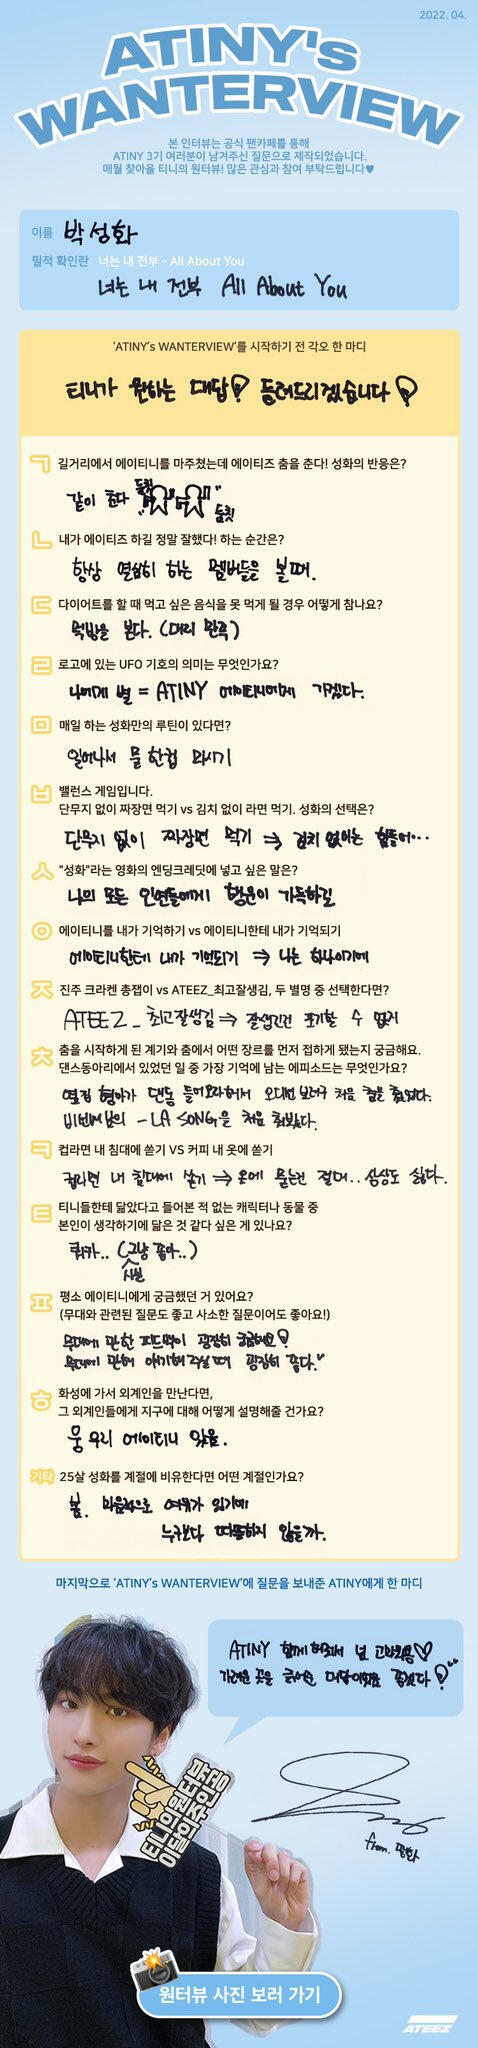 2022. 04.
ATINY's
WANTERVIEW
본 인터뷰는 공식 팬카페를 통해
ATINY 3기 여러분이 남겨주신 질문으로 제작되었습니다.
매월 찾아올 티니의 원터뷰! 많은 관심과 참여 부탁드립니다♥
이름 박성화
필적 확인란 너는 내 전부 - All About You
너는 내 전부 All About You
'ATINY's WANTERVIEW'를 시작하기 전 각오 한 마디
티니가 원하는 대답! 들려드리겠습니다!
ㄱ 길거리에서 에이티니를 마주쳤는데 에이티즈 춤을 춘다! 성화의 반응은?
같이 춘다 둠칫 둠칫
ㄴ 내가 에이티즈 하길 정말 잘했다! 하는 순간은?
항상 열심히 하는 멤버들을 볼 때.
ㄷ 다이어트를 할 때 먹고 싶은 음식을 못 먹게 될 경우 어떻게 참나요?
먹방을 본다. (대리 만족)
ㄹ 로고에 있는 UFO 기호의 의미는 무엇인가요?
나에게 별 = ATINY 에이티니에게 가겠다.
ㅁ 매일 하는 성화만의 루틴이 있다면?
일어나서 물 한컵 마시기
ㅂ 밸런스 게임입니다.
단무지 없이 짜장면 먹기 vs 김치 없이 라면 먹기. 성화의 선택은?
단무지 없이 짜장면 먹기 ⇒ 김치 없이는 힘들어...
ㅅ "성화"라는 영화의 엔딩크레딧에 넣고 싶은 말은?
나의 모든 인연들에게 행운이 가득하길
ㅇ 에이티니를 내가 기억하기 vs 에이티니한테 내가 기억되기
에이티니한테 내가 기억되기 ⇒ 나는 하나이기에
ㅈ 진주 크라켄 총잽이 vs ATEEZ_최고잘생김, 두 별명 중 선택한다면?
ATEEZ_최고잘생김 ⇒ 잘생긴건 포기할 수 없지
ㅊ 춤을 시작하게 된 계기와 춤에서 어떤 장르를 먼저 접하게 됐는지 궁금해요.
댄스동아리에서 있었던 일 중 가장 기억에 남는 에피소드는 무엇인가요?
옆집 형아가 댄동 들어오라해서 오디션 보려구 처음 춤을 췄었다.
비선배님의 - LA SONG을 처음 춰봤다.
ㅋ 컵라면 내 침대에 쏟기 VS 커피 내 옷에 쏟기
컵라면 내 침대에 쏟기 ⇒ 옷에 묻는건 절대.. 상상도 싫다.
ㅌ 티니들한테 닮았다고 들어본 적 없는 캐릭터나 동물 중
본인이 생각하기에 닮은 것 같다 싶은 게 있나요?
쿼카.. (그냥 좋아..)
사실
ㅍ 평소 에이티니에게 궁금했던 거 있어요?
(무대와 관련된 질문도 좋고 사소한 질문이어도 좋아요!)
무대에 관한 피드백이 굉장히 궁금해요!
무대에 관해 얘기해 주실 때 굉장히 좋다.
ㅎ 화성에 가서 외계인을 만난다면,
그 외계인들에게 지구에 대해 어떻게 설명해줄 건가요?
웅 우리 에이티니 있음.
기타 25살 성화를 계절에 비유한다면 어떤 계절인가요?
봄. 마음적으로 여유가 있기에
누구보다 따뜻하지 않을까.
마지막으로 'ATINY's WANTERVIEW'에 질문을 보내준 ATINY에게 한 마디
ATINY 함께 해줘서 넘 고마워용♡
가려운 곳을 긁어준 대답이었음 좋겠다!
티니의 원터뷰
이달의 주인공
from. 성화
원터뷰 사진 보러 가기
ATEEZ